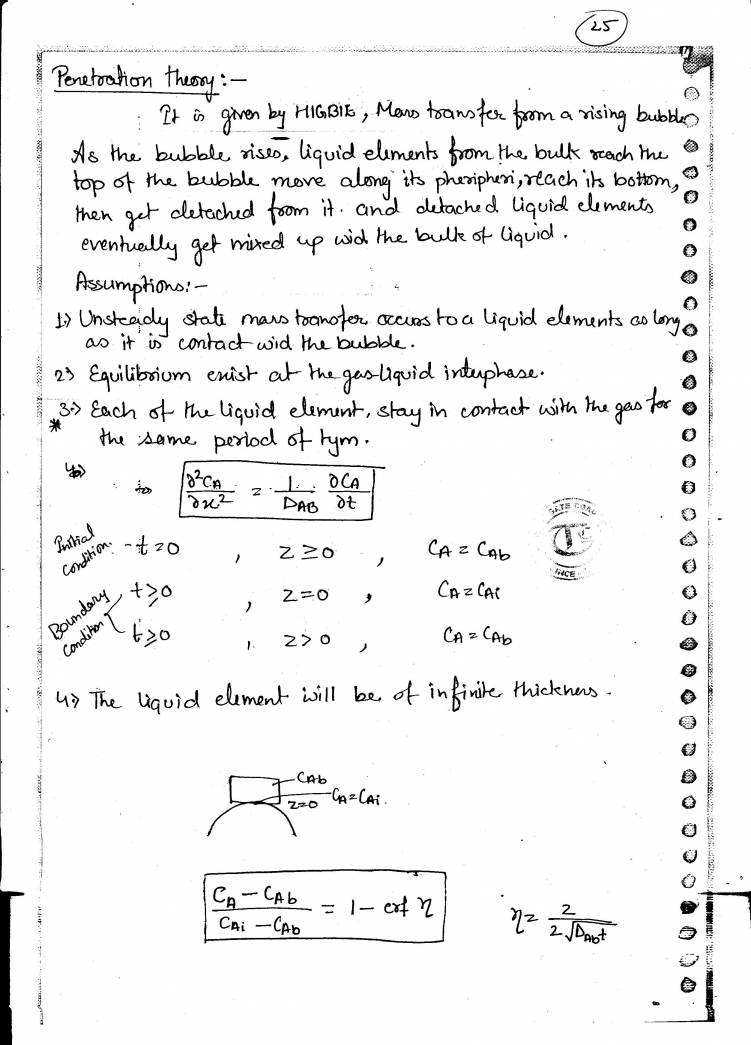 25
Penetration theory :-
It is given by HIGBIE, Mass transfer from a rising bubble
As the bubble rises, liquid elements from the bulk reach the
top of the bubble move along its pheripheri, reach its bottom,
then get detached from it. and detached liquid elements
eventually get mixed up wid the bulk of liquid.
Assumptions:-
1.) Unsteady state mass transfer occurs to a liquid elements as long
as it is contact wid the bubble.
2) Equilibrium exist at the gas-liquid interphase.
3.) Each of the liquid element, stay in contact with the gas for
* the same period of tym.
∂²CA/∂x² = 1/DAB ∂CA/∂t
GATE COA
INCE
Initial condition. - t=0, z≥0, CA = CAb
Boundary condition t≥0, z=0, CA = CAi
t≥0, z>0, CA = CAb
4) The liquid element will be of infinite thickness.
CAb
z=0 CA=CAi
CA - CAb / CAi - CAb = 1 - erf η
η = 2 / 2√DAbt